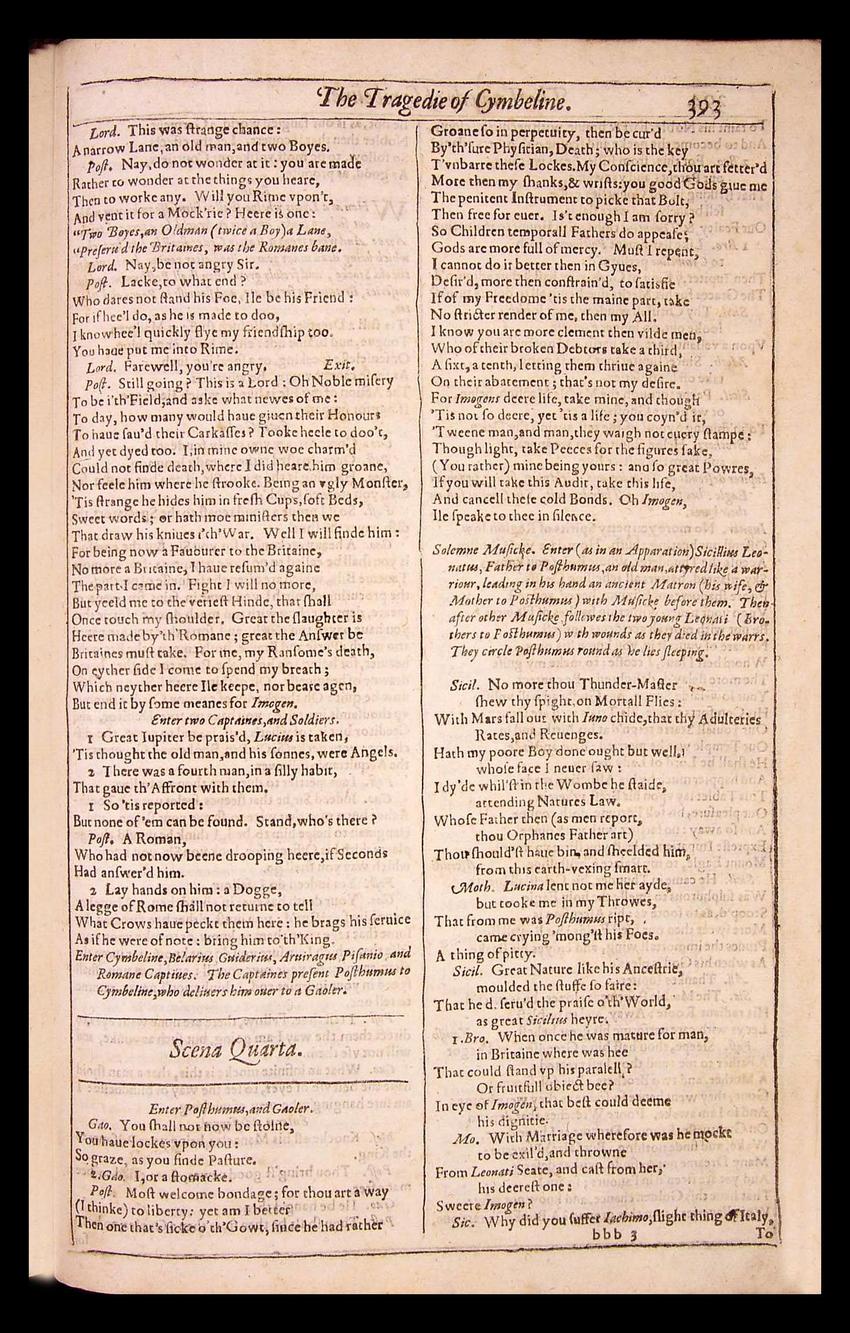 The Tragedie of Cymbeline. 393
Lord. This was ſtrange chance:
A narrow Lane, an old man, and two Boyes.
Poſt. Nay, do not wonder at it: you are made
Rather to wonder at the things you heare,
Then to worke any. Will you Rime vpon't,
And vent it for a Mock'rie? Heere is one:
"Two Boyes, an Oldman (twice a Boy) a Lane,
"Preſeru'd the Britaines, was the Romanes bane.
Lord. Nay, be not angry Sir.
Poſt. Lacke, to what end?
Who dares not ſtand his Foe, Ile be his Friend:
For if hee'l do, as he is made to doo,
I know hee'l quickly flye my friendſhip too.
You haue put me into Rime.
Lord. Farewell, you're angry. Exit.
Poſt. Still going? This is a Lord: Oh Noble miſery
To be i'th'Field, and aske what newes of me:
To day, how many would haue giuen their Honours
To haue ſau'd their Carkaſſes? Tooke heele to doo't,
And yet dyed too. I, in mine owne woe charm'd
Could not finde death, where I did heare him groane,
Nor feele him where he ſtrooke. Being an vgly Monſter,
'Tis ſtrange he hides him in freſh Cups, ſoft Beds,
Sweet words; or hath moe miniſters then we
That draw his kniues i'th'War. Well I will finde him:
For being now a Fauourer to the Britaine,
No more a Britaine, I haue reſum'd againe
The part I came in. Fight I will no more,
But yeeld me to the verieſt Hinde, that ſhall
Once touch my ſhoulder. Great the ſlaughter is
Heere made by'th'Romane; great the Anſwer be
Britaines muſt take. For me, my Ranſome's death,
On eyther ſide I come to ſpend my breath;
Which neyther heere Ile keepe, nor beare agen,
But end it by ſome meanes for Imogen.
Enter two Captaines, and Soldiers.
1 Great Iupiter be prais'd, Lucius is taken,
'Tis thought the old man, and his ſonnes, were Angels.
2 There was a fourth man, in a ſilly habit,
That gaue th'Affront with them.
1 So 'tis reported:
But none of 'em can be found. Stand, who's there?
Poſt. A Roman,
Who had not now beene drooping heere, if Seconds
Had anſwer'd him.
2 Lay hands on him: a Dogge,
A legge of Rome ſhall not returne to tell
What Crows haue peckt them here: he brags his ſeruice
As if he were of note: bring him to'th'King.
Enter Cymbeline, Belarius, Guiderius, Aruiragus, Piſanio, and
Romane Captiues. The Captaines preſent Poſthumus to
Cymbeline, who deliuers him ouer to a Gaoler.
Scena Quarta.
Enter Poſthumus, and Gaoler.
Gao. You ſhall not now be ſtolne,
You haue lockes vpon you:
So graze, as you finde Paſture.
2. Gao. I, or a ſtomacke.
Poſt. Moſt welcome bondage; for thou art a way
(I thinke) to liberty: yet am I better
Then one that's ſicke o'th'Gowt, ſince he had rather
Groane ſo in perpetuity, then be cur'd
By'th'ſure Phyſitian, Death; who is the key
T'vnbarre theſe Lockes. My Conſcience, thou art fetter'd
More then my ſhanks, & wriſts: you good Gods giue me
The penitent Inſtrument to picke that Bolt,
Then free for euer. Is't enough I am ſorry?
So Children temporall Fathers do appeaſe;
Gods are more full of mercy. Muſt I repent,
I cannot do it better then in Gyues,
Deſir'd, more then conſtrain'd, to ſatisfie
If of my Freedome 'tis the maine part, take
No ſtricter render of me, then my All.
I know you are more clement then vilde men,
Who of their broken Debtors take a third,
A ſixt, a tenth, letting them thriue againe
On their abatement; that's not my deſire.
For Imogens deere life, take mine, and though
'Tis not ſo deere, yet 'tis a life; you coyn'd it,
'Tweene man, and man, they waigh not euery ſtampe:
Though light, take Peeces for the figures ſake,
(You rather) mine being yours: and ſo great Powres,
If you will take this Audit, take this life,
And cancell theſe cold Bonds. Oh Imogen,
Ile ſpeake to thee in ſilence.
Solemne Muſicke. Enter (as in an Apparation) Sicillius Leo-
natus, Father to Poſthumus, an old man, attyred like a war-
riour, leading in his hand an ancient Matron (his wife, &
Mother to Poſthumus) with Muſicke before them. Then
after other Muſicke, followes the two young Leonati (Bro-
thers to Poſthumus) with wounds as they died in the warrs.
They circle Poſthumus round as he lies ſleeping.
Sicil. No more thou Thunder-Maſter
ſhew thy ſpight, on Mortall Flies:
With Mars fall out with Iuno chide, that thy Adulteries
Rates, and Reuenges.
Hath my poore Boy done ought but well,
whoſe face I neuer ſaw:
I dy'de whil'ſt in the Wombe he ſtaide,
attending Natures Law.
Whoſe Father then (as men report,
thou Orphanes Father art)
Thou ſhould'ſt haue bin, and ſheelded him,
from this earth-vexing ſmart.
Moth. Lucina lent not me her ayde,
but tooke me in my Throwes,
That from me was Poſthumus ript,
came crying 'mong'ſt his Foes.
A thing of pitty.
Sicil. Great Nature like his Anceſtrie,
moulded the ſtuffe ſo faire:
That he d. ſeru'd the praiſe o'th'World,
as great Sicilius heyre.
1. Bro. When once he was mature for man,
in Britaine where was hee
That could ſtand vp his paralell?
Or fruitfull obiect bee?
In eye of Imogen, that beſt could deeme
his dignitie.
Mo. With Marriage wherefore was he mockt
to be exil'd, and throwne
From Leonati Seate, and caſt from her,
his deereſt one:
Sweete Imogen?
Sic. Why did you ſuffer Iachimo, ſlight thing of Italy,
bbb 3 To